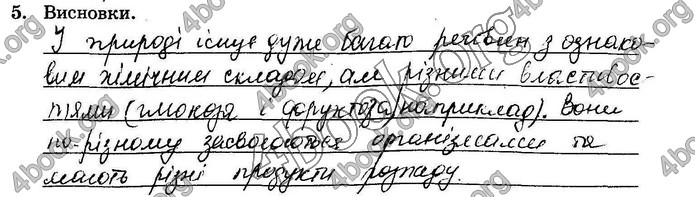 5. Висновки.
У природі існує дуже багато речовин з однако-
вим хімічним складом, але різними властивос-
тями (глюкоза і фруктоза наприклад). Вони
по-різному засвоюються організмами та
мають різні продукти розпаду.
4book.org